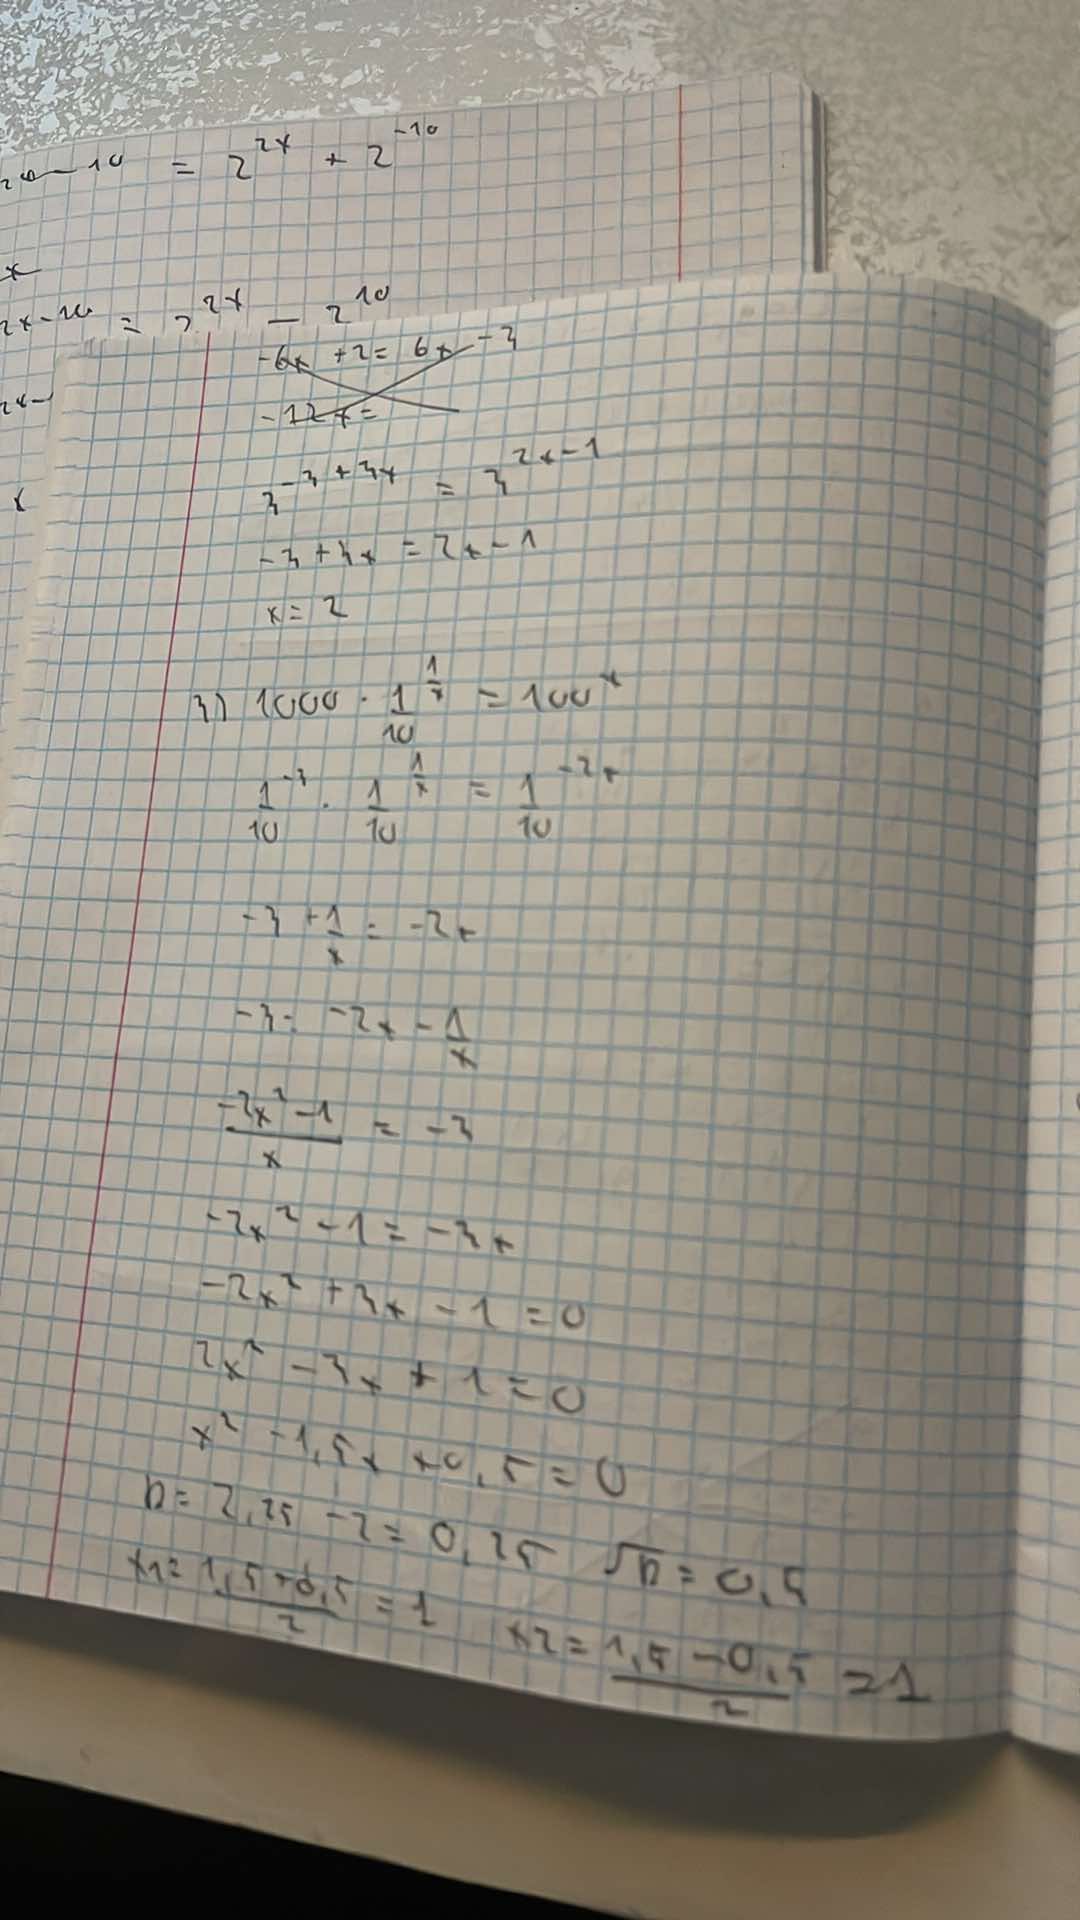 -10 = 2^2x + 2^-10
x
2x-10 = 2^2x - 2^10
-6x + 2 = 6x - 3
-12x =
2x-
3^-3+3x = 3^2x-1
-3 + 3x = 2x - 1
x = 2
3) 1000 · 1/10^1/x = 100^x
1/10^-3 · 1/10^1/x = 1/10^-2x
-3 + 1/x = -2x
-3 = -2x - 1/x
-2x² - 1/x = -3
-2x² - 1 = -3x
-2x² + 3x - 1 = 0
2x² - 3x + 1 = 0
x² - 1,5x + 0,5 = 0
D = 2,25 - 2 = 0,25 √D = 0,5
x1 = 1,5+0,5/2 = 1 x2 = 1,5-0,5/2 = 1